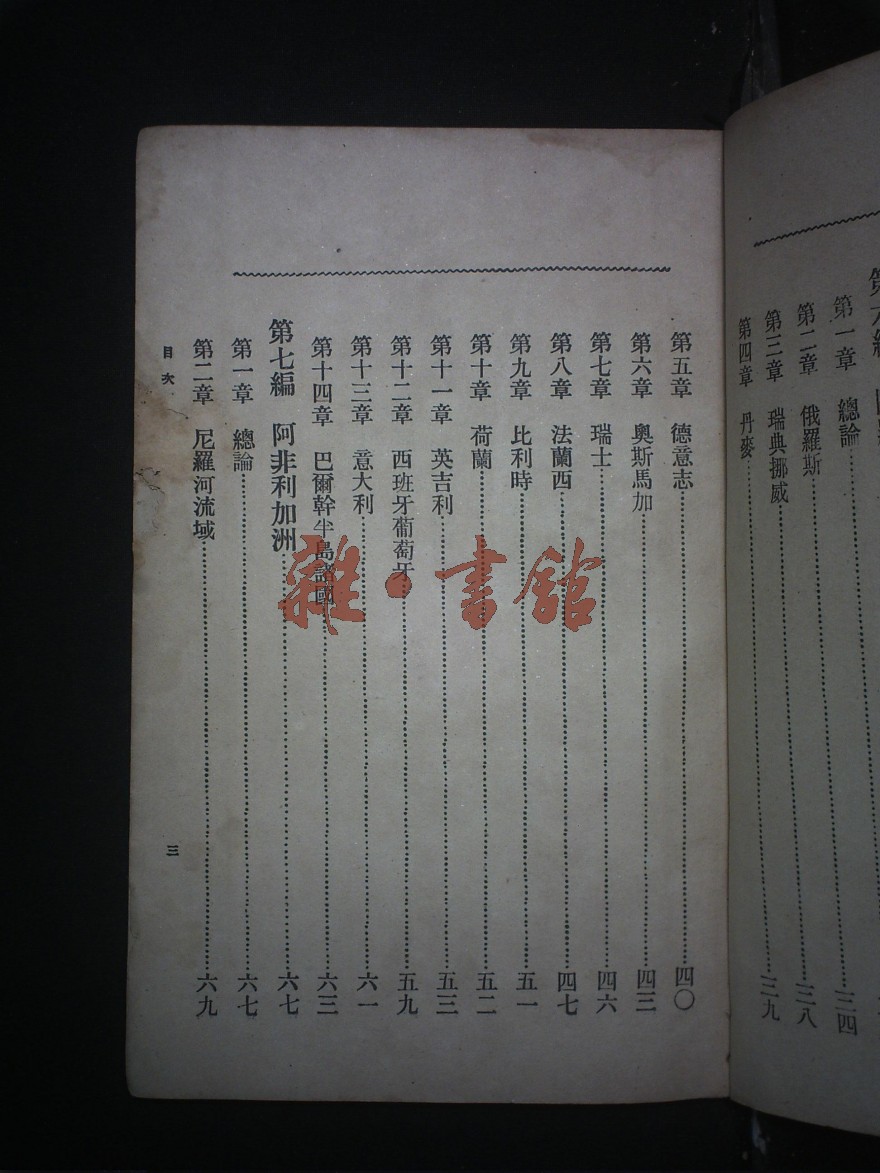 第一章　總論……三四
第二章　俄羅斯……三八
第三章　瑞典挪威……三九
第四章　丹麥
第五章　德意志……四〇
第六章　奧斯馬加……四三
第七章　瑞士……四六
第八章　法蘭西……四七
第九章　比利時……五一
第十章　荷蘭……五二
第十一章　英吉利……五三
第十二章　西班牙葡萄牙……五九
第十三章　意大利……六一
第十四章　巴爾幹半島諸國……六三
第七編　阿非利加洲……六七
第一章　總論……六七
第二章　尼羅河流域……六九
目次
三
雜·書館